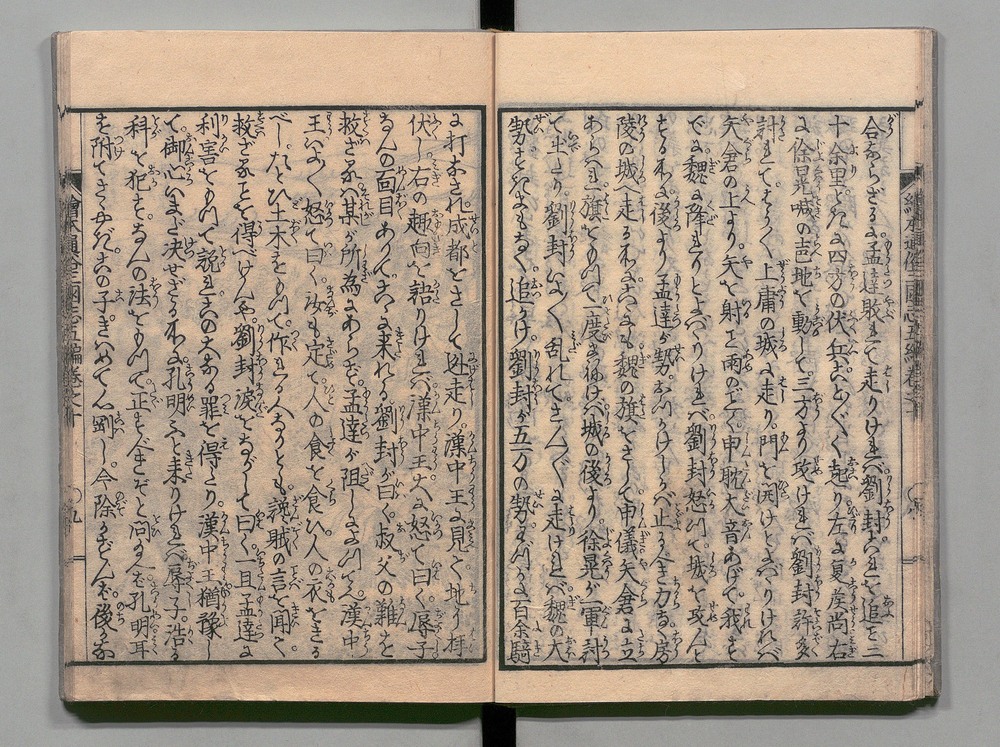 合ならざるに孟達敗れて走りければ劉封これを追こと二
十余里すでに四方の伏兵ことごとく起り左に夏侯尚右
に徐晃喊の声地を動し。三方より攻ければ劉封許多
討れてやうやく上庸の城に走り。門を開けとよばゝりければ
矢倉の上より矢を射こと雨のごとく申耽大音あげて我もす
でに魏に降れりとよばゝりければ劉封怒つて城を攻んと
するに後より孟達が勢おひかけしかば止るべき力なく房
陵の城へ走るにこゝにも魏の旗をさして申儀矢倉に立
あらはれ旗をもつて一度まねけば城の後より徐晃が軍討
て出たり。劉封いよ〳〵乱れてさん〴〵に走ければ魏の大
勢すきまもなく。追かけ劉封が五万の勢わづかに百余騎
に打なされ。成都をさして迯走り。漢中王に見て地に拝
伏し。右の趣向を語りければ漢中王大に怒て曰く。辱子
なんの面目あつてこゝに来れる劉封が曰く。叔父の難を
救ざるは某が所為にあらず。孟達が阻しによつてなり漢中
王いよ〳〵怒て曰く汝も定て人の食を食ひ人の衣をきる
べし。たとひ土木をもつて作れる人なりとも。讒賊の言を聞て
救ざることを得べけんや。劉封涙をながして曰く一旦孟達に
利害をもつて説れこの大なる罪を得たり。漢中王猶豫し
て。御心いまだ決せざる所に孔明入来りければ辱子浩る
科を犯す。なんの法をもつて正すべきぞと問玉へば孔明耳
に附てさゝやきこの子きはめて心剛し今除かずんば後かな
繪本通俗三國志五編卷之十
九